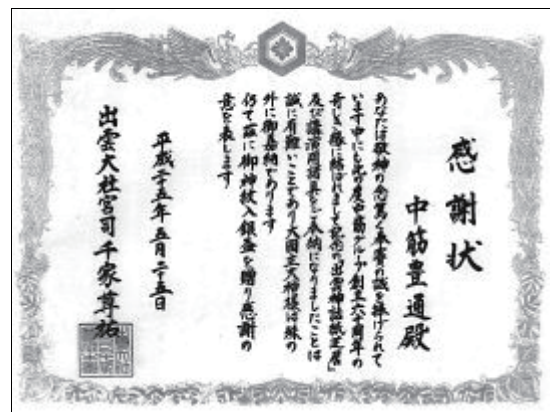 感謝状
中筋豊通殿
あなたは敬神の念篤く奉賽の誠を捧げられて
います中にも此の度中筋グループ創立六十周年の
寿しき縁に結ばれまして記念の「出雲神話紙芝居」
及び講演用諸具をご奉納になりましたことは
誠に有難いことであり大国主大神様は殊の
外に御嘉納であります
仍て茲に御神紋入銀盃を贈り感謝の
意を表します
平成二十五年五月二十五日
出雲大社宮司千家尊祐